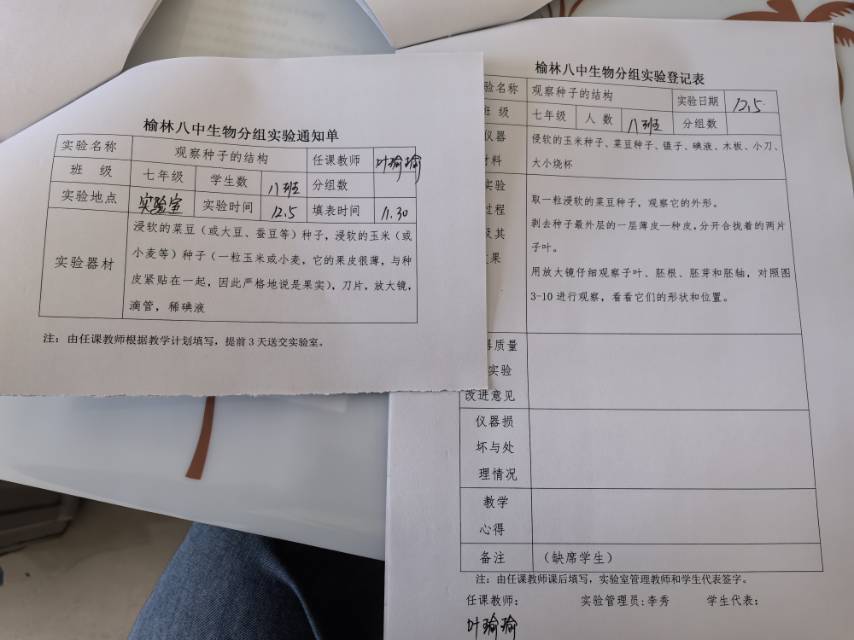 榆林八中生物分组实验通知单
实验名称 观察种子的结构 任课教师 叶瑜瑜
班 级 七年级 学生数 八班 分组数
实验地点 实验室 实验时间 12.5 填表时间 11.30
实验器材
浸软的菜豆（或大豆、蚕豆等）种子，浸软的玉米（或
小麦等）种子（一粒玉米或小麦，它的果皮很薄，与种
皮紧贴在一起，因此严格地说是果实），刀片，放大镜，
滴管，稀碘液
注：由任课教师根据教学计划填写，提前3天送交实验室。
榆林八中生物分组实验登记表
验名称 观察种子的结构 实验日期 12.5
班 级 七年级 人 数 八班 分组数
仪器
材料
浸软的玉米种子、菜豆种子、镊子、碘液、木板、小刀、
大小烧杯
实验
过程
及其
果
取一粒浸软的菜豆种子，观察它的外形。
剥去种子最外层的一层薄皮—种皮，分开合拢着的两片
子叶。
用放大镜仔细观察子叶、胚根、胚芽和胚轴，对照图
3-10进行观察，看看它们的形状和位置。
质量
实验
改进意见
仪器损
坏与处
理情况
教学
心得
备注 （缺席学生）
注：由任课教师课后填写，实验室管理教师和学生代表签字。
任课教师： 实验管理员：李秀 学生代表：
叶瑜瑜